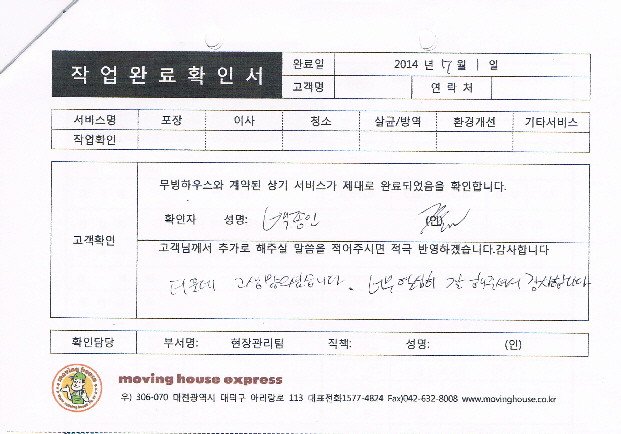 작업완료확인서
완료일 2014 년 7 월 1 일
고객명 연 락 처
서비스명 포장 이사 청소 살균/방역 환경개선 기타서비스
작업확인
고객확인
무빙하우스와 계약된 상기 서비스가 제대로 완료되었음을 확인합니다.
확인자 성명: 박종인 (인)
고객님께서 추가로 해주실 말씀을 적어주시면 적극 반영하겠습니다.감사합니다
더운데 고생많으셨습니다. 너무 열심히 잘 해주셔서 감사합니다
확인담당 부서명: 현장관리팀 직책: 성명: (인)
moving house
moving house express
우) 306-070 대전광역시 대덕구 아리랑로 113 대표전화1577-4824 Fax)042-632-8008 www.movinghouse.co.kr